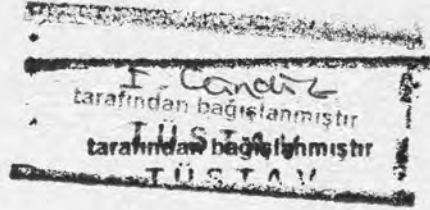 I. Candız
tarafından bağışlanmıştır
TÜSTAV
tarafından bağışlanmıştır
TÜSTAV